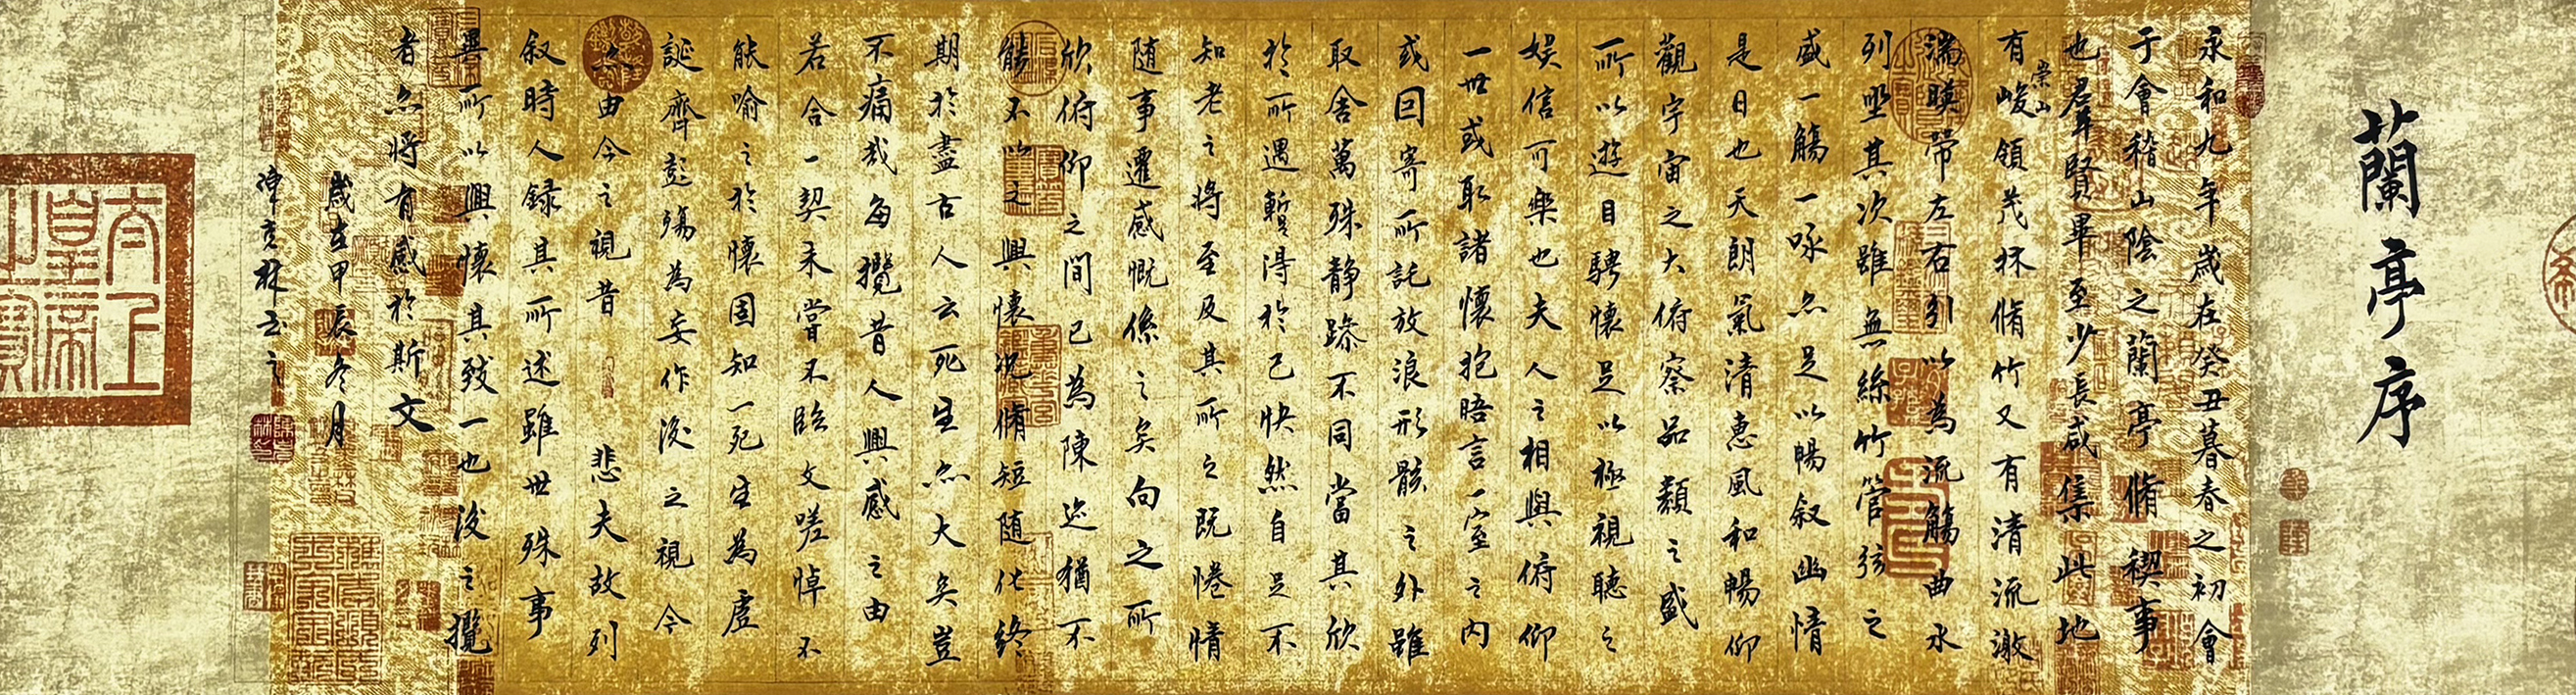 蘭亭序
永和九年歲在癸丑暮春之初會
于會稽山陰之蘭亭脩稧事
也羣賢畢至少長咸集此地
有崇山峻領茂林脩竹又有清流激
湍暎帶左右引以為流觴曲水
列坐其次雖無絲竹管弦之
盛一觴一詠亦足以暢叙幽情
是日也天朗氣清惠風和暢仰
觀宇宙之大俯察品類之盛
所以遊目騁懷足以極視聽之
娛信可樂也夫人之相與俯仰
一世或取諸懷抱晤言一室之內
或因寄所託放浪形骸之外雖
取舍萬殊静躁不同當其欣
於所遇暫得於己快然自足不
知老之將至及其所之既惓情
随事遷感慨係之矣向之所
欣俯仰之間已為陳迹猶不
能不以之興懷況脩短随化終
期於盡古人云死生亦大矣豈
不痛哉每攬昔人興感之由
若合一契未嘗不臨文嗟悼不
能喻之於懷固知一死生為虛
誕齊彭殤為妄作後之視今
亦由今之視昔 悲夫故列
叙時人録其所述雖世殊事
異所以興懷其致一也後之攬
者亦將有感於斯文
歲在甲辰冬月
林书之
太上皇帝